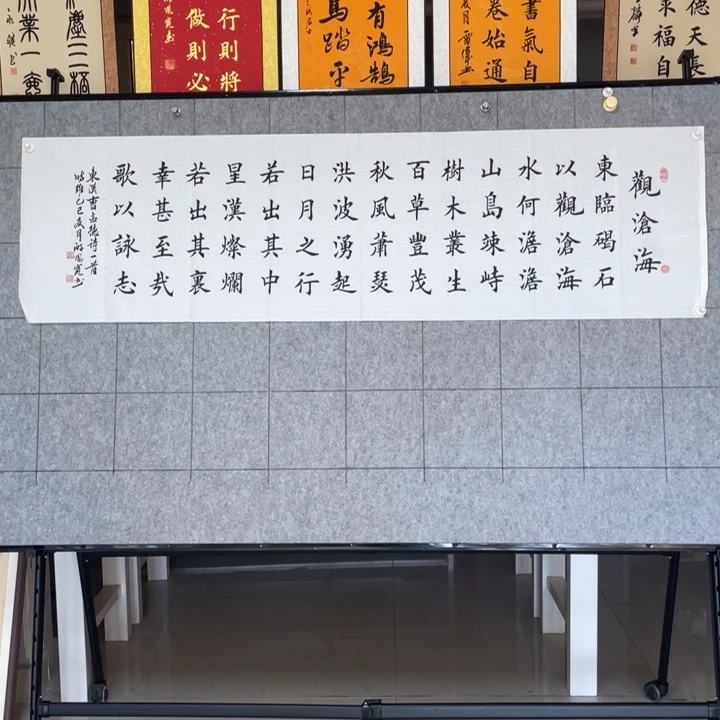 觀滄海
東臨碣石
以觀滄海
水何澹澹
山島竦峙
樹木叢生
百草豐茂
秋風蕭瑟
洪波湧起
日月之行
若出其中
星漢燦爛
若出其裏
幸甚至哉
歌以詠志
東漢曹孟德詩一首
時維乙巳夏月
德天長
永福自
書氣自
卷始通
有鴻鵠
馬踏平
行則將
做則必